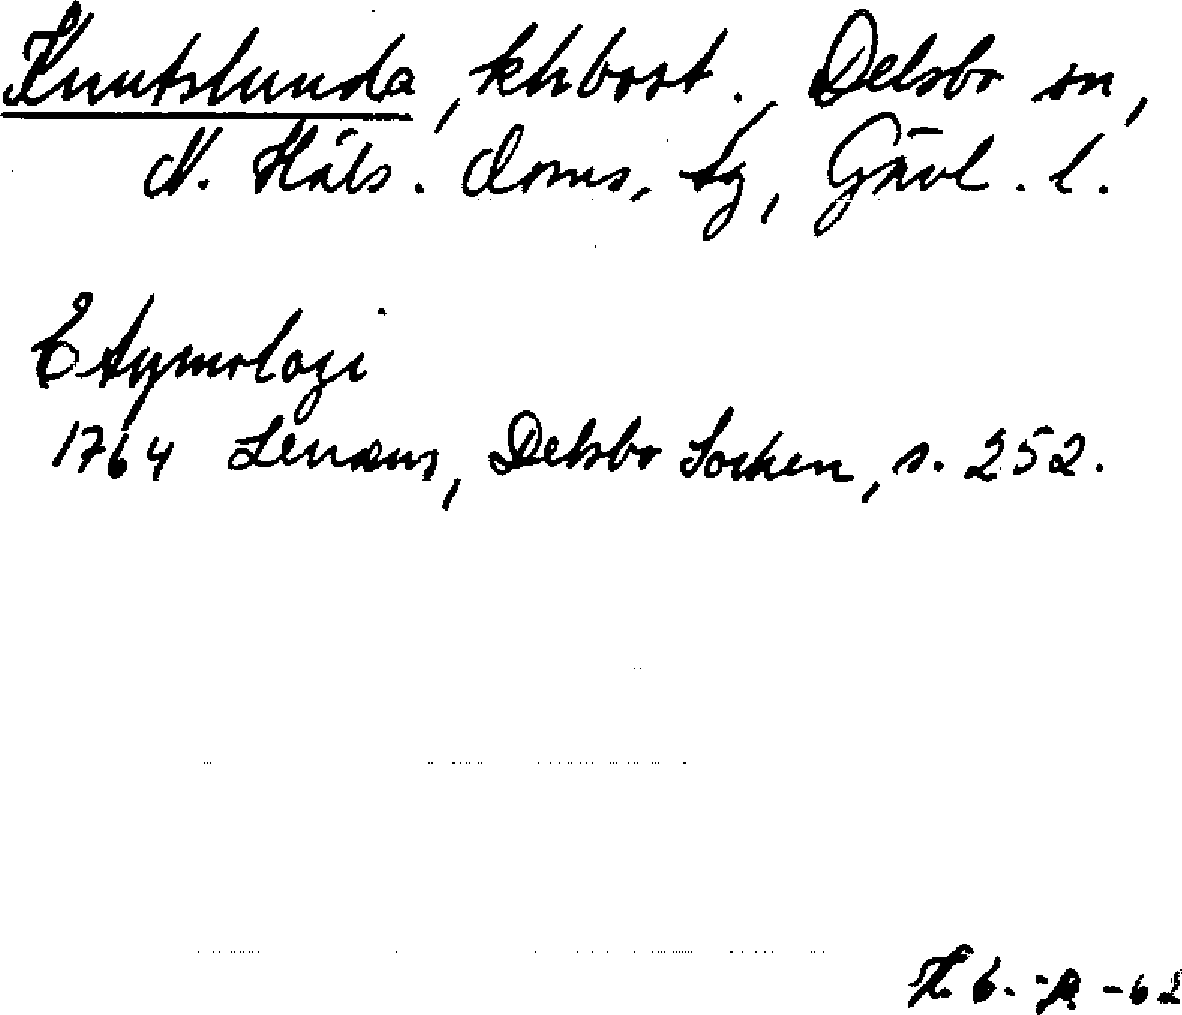 Knutslunda, khbost., Delsbo sn,
N. Häls. doms. tg, Gävl. l.
Etymologi
1764 Lenæus, Delsbo Socken, s. 252.
-62